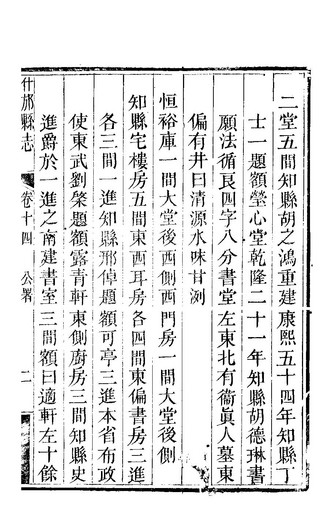 二堂五間知縣胡之鴻重建康熙五十四年知縣丁
士一題額瑩心堂乾隆二十一年知縣胡德琳書
願法循良四字八分書堂左東北有衞眞人墓東
偏有井曰清源水味甘洌
恒裕庫一間大堂後西側西門房一間大堂後側
知縣宅樓房五間東西耳房各四間東偏書房三進
各三間一進知縣邢倬題額可亭三進本省布政
使東武劉棨題額露青軒東側廚房三間知縣史
進爵於一進之南建書室三間額曰適軒左十餘
什邡縣志
卷十四 公署
二